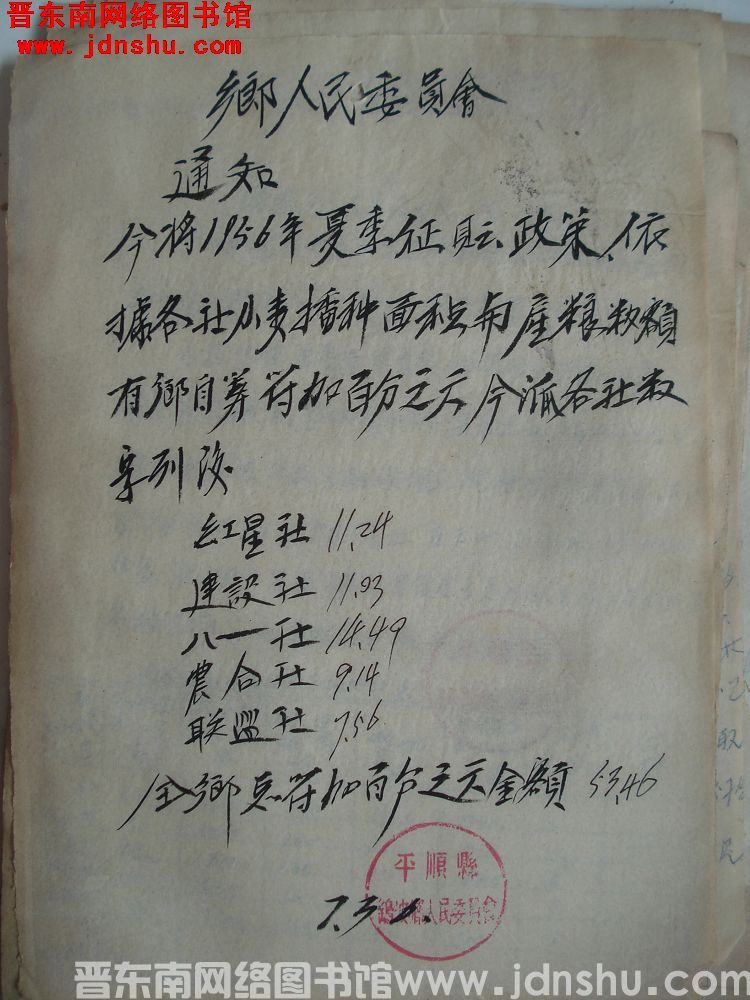 晋东南网络图书馆
www.jdnshu.com
鄉人民委員會
通知
今将1956年夏季征貝云政策、依
据各社小麦播种面积与産粮数額
有鄉自筹符加百分之六今派各社数
字列後
紅星社 11.24
建設社 11.03
八一社 14.49
農合社 9.14
联盟社 7.56
全鄉总符加百分之六金額 53.46
平順縣
鄉人民委員会
晋东南网络图书馆www.jdnshu.com